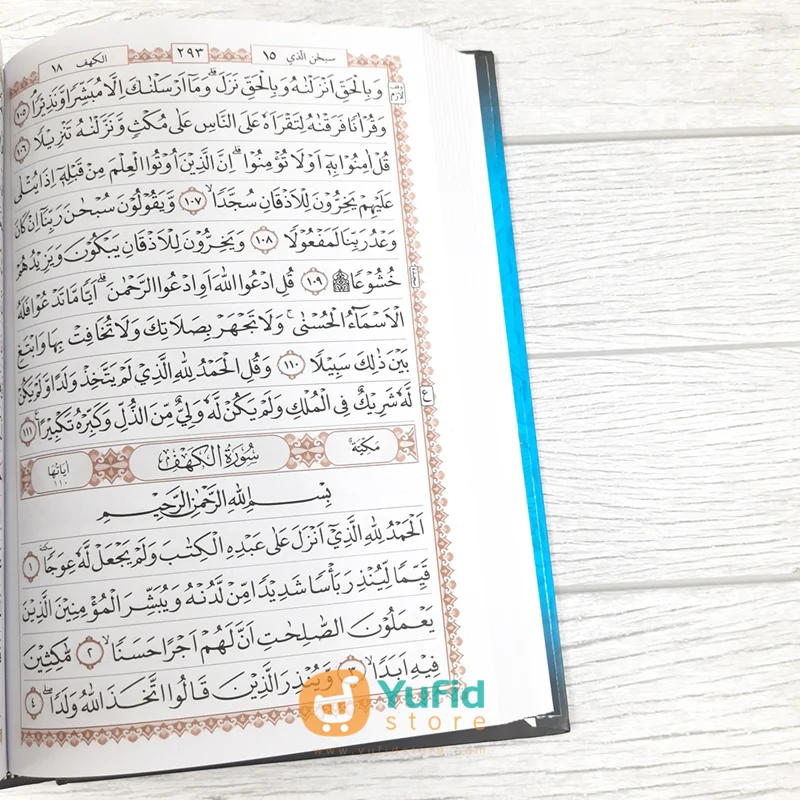 الكهف ١٨
٢٩٣
سبحٰن الّذي ١٥
وَبِالْحَقِّ اَنْزَلْنٰهُ وَبِالْحَقِّ نَزَلَۗ وَمَآ اَرْسَلْنٰكَ اِلَّا مُبَشِّرًا وَّنَذِيْرًاۘ ١٠٥
وَقُرْاٰنًا فَرَقْنٰهُ لِتَقْرَاَهٗ عَلَى النَّاسِ عَلٰى مُكْثٍ وَّنَزَّلْنٰهُ تَنْزِيْلًا ١٠٦
قُلْ اٰمِنُوْا بِهٖٓ اَوْ لَا تُؤْمِنُوْاۗ اِنَّ الَّذِيْنَ اُوْتُوا الْعِلْمَ مِنْ قَبْلِهٖٓ اِذَا يُتْلٰى
عَلَيْهِمْ يَخِرُّوْنَ لِلْاَذْقَانِ سُجَّدًاۙ ١٠٧ وَّيَقُوْلُوْنَ سُبْحٰنَ رَبِّنَآ اِنْ كَانَ
وَعْدُ رَبِّنَا لَمَفْعُوْلًا ١٠٨ وَيَخِرُّوْنَ لِلْاَذْقَانِ يَبْكُوْنَ وَيَزِيْدُهُمْ
خُشُوْعًا ۩ ١٠٩ قُلِ ادْعُوا اللّٰهَ اَوِ ادْعُوا الرَّحْمٰنَۗ اَيًّا مَّا تَدْعُوْا فَلَهُ
الْاَسْمَاۤءُ الْحُسْنٰىۚ وَلَا تَجْهَرْ بِصَلَاتِكَ وَلَا تُخَافِتْ بِهَا وَابْتَغِ
بَيْنَ ذٰلِكَ سَبِيْلًا ١١٠ وَقُلِ الْحَمْدُ لِلّٰهِ الَّذِيْ لَمْ يَتَّخِذْ وَلَدًا وَّلَمْ يَكُنْ
لَّهٗ شَرِيْكٌ فِى الْمُلْكِ وَلَمْ يَكُنْ لَّهٗ وَلِيٌّ مِّنَ الذُّلِّ وَكَبِّرْهُ تَكْبِيْرًاۚ ١١١
ع
مَكِّيَّة
سُوْرَةُ الْكَهْفِ
اٰيَاتُهَا
١١٠
بِسْمِ اللّٰهِ الرَّحْمٰنِ الرَّحِيْمِ
اَلْحَمْدُ لِلّٰهِ الَّذِيْٓ اَنْزَلَ عَلٰى عَبْدِهِ الْكِتٰبَ وَلَمْ يَجْعَلْ لَّهٗ عِوَجًا ۜ ١
قَيِّمًا لِّيُنْذِرَ بَأْسًا شَدِيْدًا مِّنْ لَّدُنْهُ وَيُبَشِّرَ الْمُؤْمِنِيْنَ الَّذِيْنَ
يَعْمَلُوْنَ الصّٰلِحٰتِ اَنَّ لَهُمْ اَجْرًا حَسَنًاۙ ٢ مّٰكِثِيْنَ
فِيْهِ اَبَدًاۙ ٣ وَّيُنْذِرَ الَّذِيْنَ قَالُوا اتَّخَذَ اللّٰهُ وَلَدًاۖ ٤
Yufid
store
www.yufidstore.com